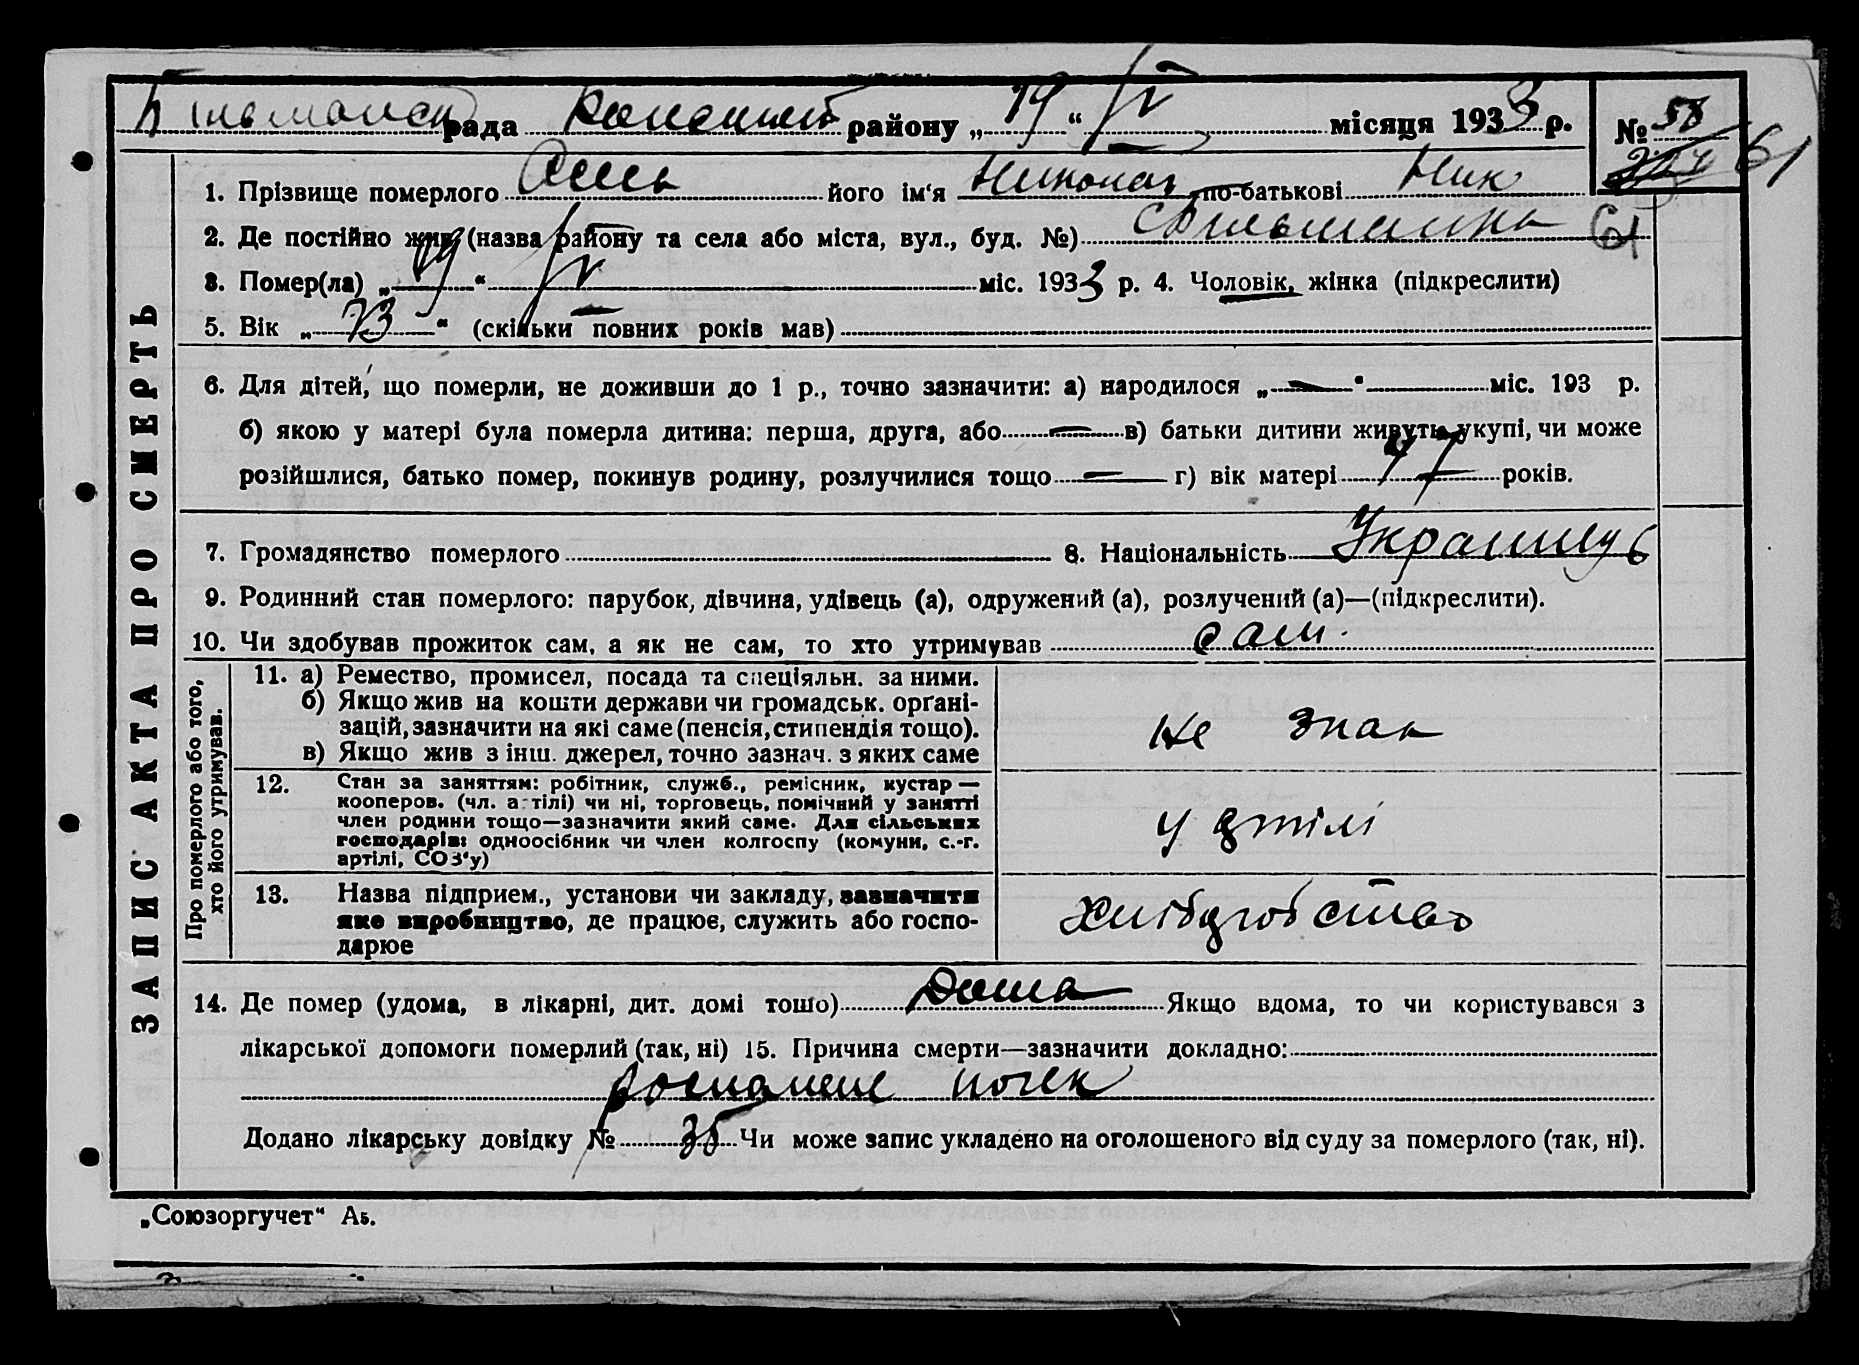 рада району „19“ IV місяця 1933 р. № 58
61
1. Прізвище померлого його ім‘я Николай по-батькові Ник
2. Де постійно жив (назва району та села або міста, вул., буд. №) 61
3. Помер(ла) „19“ IV міс. 1933 р. 4. Чоловік, жінка (підкреслити)
5. Вік „73“ (скільки повних років мав)
6. Для дітей, що померли, не доживши до 1 р., точно зазначити: а) народилося „—“ — міс. 193 р.
б) якою у матері була померла дитина: перша, друга, або — в) батьки дитини живуть укупі, чи може
розійшлися, батько помер, покинув родину, розлучилися тощо — г) вік матері років.
7. Громадянство померлого 8. Національність
9. Родинний стан померлого: парубок, дівчина, удівець (а), одружений (а), розлучений (а)—(підкреслити).
10. Чи здобував прожиток сам, а як не сам, то хто утримував сам.
11. а) Ремество, промисел, посада та спеціяльн. за ними.
б) Якщо жив на кошти держави чи громадськ. орґані-
зацій, зазначити на які саме (пенсія, стипендія тощо).
в) Якщо жив з інш. джерел, точно зазнач. з яких саме
не знак
12. Стан за заняттям: робітник, служб., ремісник, кустар —
кооперов. (чл. артілі) чи ні, торговець, помічний у занятті
член родини тощо—зазначити який саме. Для сільських
господарів: одноосібник чи член колгоспу (комуни, с.-г.
артілі, СОЗ‘у)
у артілі
13. Назва підприєм., установи чи закладу, зазначити
яке виробництво, де працює, служить або госпо-
дарює
14. Де помер (удома, в лікарні, дит. домі тощо) Дома Якщо вдома, то чи користувався з
лікарської допомоги померлий (так, ні) 15. Причина смерти—зазначити докладно:
почек
Додано лікарську довідку № 35 Чи може запис укладено на оголошеного від суду за померлого (так, ні).
ЗАПИС АКТА ПРО СМЕРТЬ
Про померлого або того,
хто його утримував.
„Союзоргучет“ Аь.